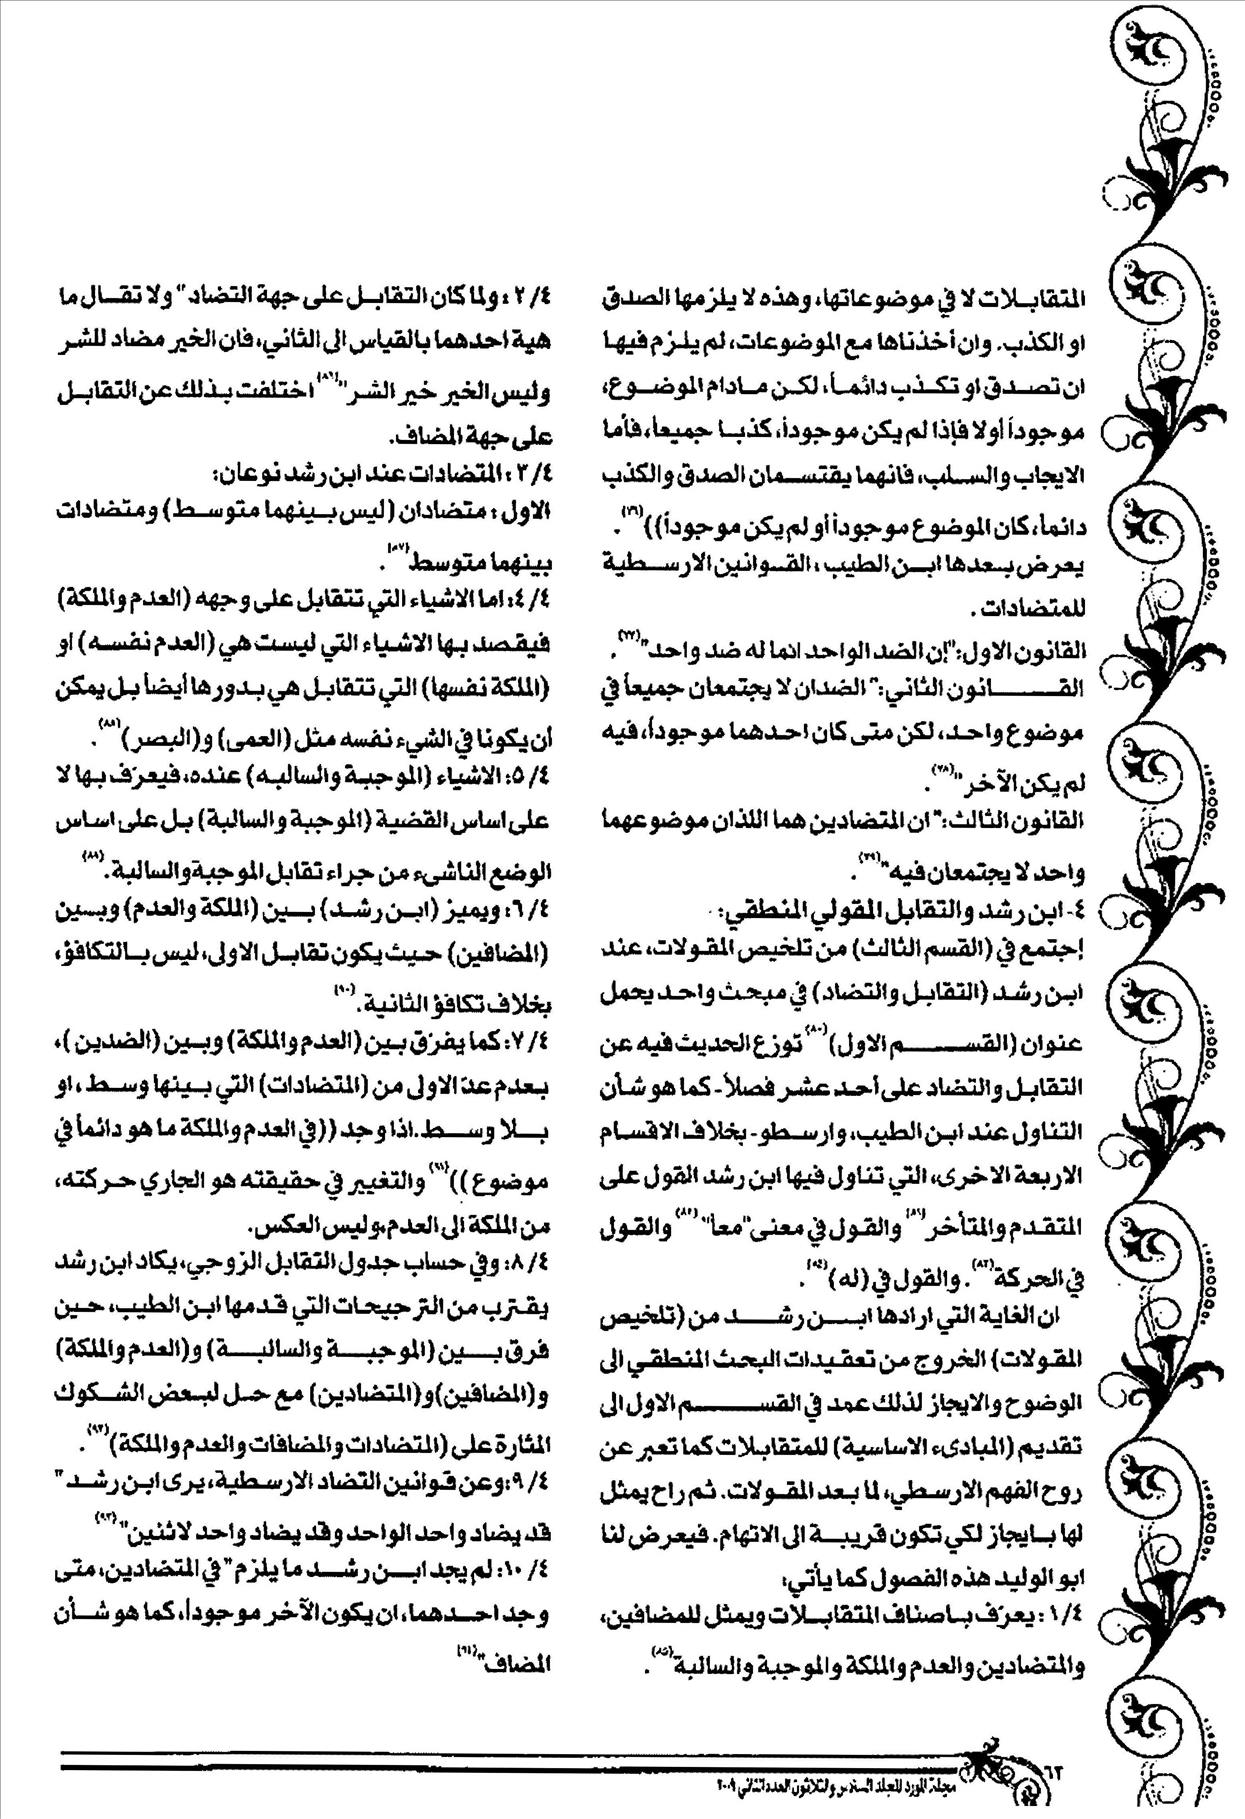 المتقابلات لا في موضوعاتها، وهذه لا يلزمها الصدق
او الكذب. وان أخذناها مع الموضوعات، لم يلزم فيها
ان تصدق او تكذب دائماً، لكن مادام الموضوع،
موجوداً أولا فإذا لم يكن موجوداً، كذبا جميعاً، فأما
الايجاب والسلب، فانهما يقتسمان الصدق والكذب
دائماً، كان الموضوع موجوداً أو لم يكن موجوداً))(٧٦).
يعرض بعدها ابن الطيب، القوانين الارسطية
للمتضادات.
القانون الاول:"إن الضد الواحد انما له ضد واحد"(٧٧).
القانون الثاني:" الضدان لا يجتمعان جميعاً في
موضوع واحد، لكن متى كان احدهما موجوداً، فيه
لم يكن الآخر"(٧٨).
القانون الثالث:" ان المتضادين هما اللذان موضوعهما
واحد لا يجتمعان فيه"(٧٩).
٤- ابن رشد والتقابل المقولي المنطقي:
إجتمع في (القسم الثالث) من تلخيص المقولات، عند
ابن رشد (التقابل والتضاد) في مبحث واحد يحمل
عنوان (القسم الاول)(٨٠) توزع الحديث فيه عن
التقابل والتضاد على أحد عشر فصلاً- كما هو شأن
التناول عند ابن الطيب، وارسطو- بخلاف الاقسام
الاربعة الاخرى، التي تناول فيها ابن رشد القول على
المتقدم والمتأخر(٨١) والقول في معنى"معاً"(٨٢) والقول
في الحركة(٨٣). والقول في (له)(٨٤).
ان الغاية التي ارادها ابن رشد من (تلخيص
المقولات) الخروج من تعقيدات البحث المنطقي الى
الوضوح والايجاز لذلك عمد في القسم الاول الى
تقديم (المبادىء الاساسية) للمتقابلات كما تعبر عن
روح الفهم الارسطي، لما بعد المقولات. ثم راح يمثل
لها بايجاز لكي تكون قريبة الى الاتهام. فيعرض لنا
ابو الوليد هذه الفصول كما يأتي:
٤/ ١: يعرّف باصناف المتقابلات ويمثل للمضافين،
والمتضادين والعدم والملكة والموجبة والسالبة(٨٥).
٤/ ٢: ولما كان التقابل على جهة التضاد" ولا تقال ما
هية احدهما بالقياس الى الثاني، فان الخير مضاد للشر
وليس الخير خير الشر"(٨٦) اختلفت بذلك عن التقابل
على جهة المضاف.
٤/ ٣: المتضادات عند ابن رشد نوعان:
الاول: متضادان (ليس بينهما متوسط) ومتضادات
بينهما متوسط(٨٧).
٤/ ٤: اما الاشياء التي تتقابل على وجهه (العدم والملكة)
فيقصد بها الاشياء التي ليست هي (العدم نفسه) او
(الملكة نفسها) التي تتقابل هي بدورها أيضاً بل يمكن
أن يكونا في الشيء نفسه مثل (العمى) و(البصر)(٨٨).
٤/ ٥: الاشياء (الموجبة والسالبه) عنده، فيعرّف بها لا
على اساس القضية (الموجبة والسالبة) بل على اساس
الوضع الناشىء من جراء تقابل الموجبة والسالبة.(٨٩)
٤/ ٦: ويميز (ابن رشد) بين (الملكة والعدم) وبين
(المضافين) حيث يكون تقابل الاولى، ليس بالتكافؤ،
بخلاف تكافؤ الثانية.(٩٠)
٤/ ٧: كما يفرّق بين (العدم والملكة) وبين (الضدين)،
بعدم عدّ الاولى من (المتضادات) التي بينها وسط، او
بلا وسط. اذا وجد ((في العدم والملكة ما هو دائماً في
موضوع))(٩١) والتغيير في حقيقته هو الجاري حركته،
من الملكة الى العدم، وليس العكس.
٤/ ٨: وفي حساب جدول التقابل الزوجي، يكاد ابن رشد
يقترب من الترجيحات التي قدمها ابن الطيب، حين
فرق بين (الموجبة والسالبة) و(العدم والملكة)
و(المضافين)و(المتضادين) مع حل لبعض الشكوك
المثارة على (المتضادات والمضافات والعدم والملكة)(٩٢).
٤/ ٩: وعن قوانين التضاد الارسطية، يرى ابن رشد"
قد يضاد واحد الواحد وقد يضاد واحد لاثنين"(٩٣)
٤/ ١٠: لم يجد ابن رشد ما يلزم" في المتضادين، متى
وجد احدهما، ان يكون الآخر موجوداً، كما هو شأن
المضاف"(٩٤)
٦٢
مجلة المورد المجلد السادس والثلاثون العدد الثاني ٢٠٠٩